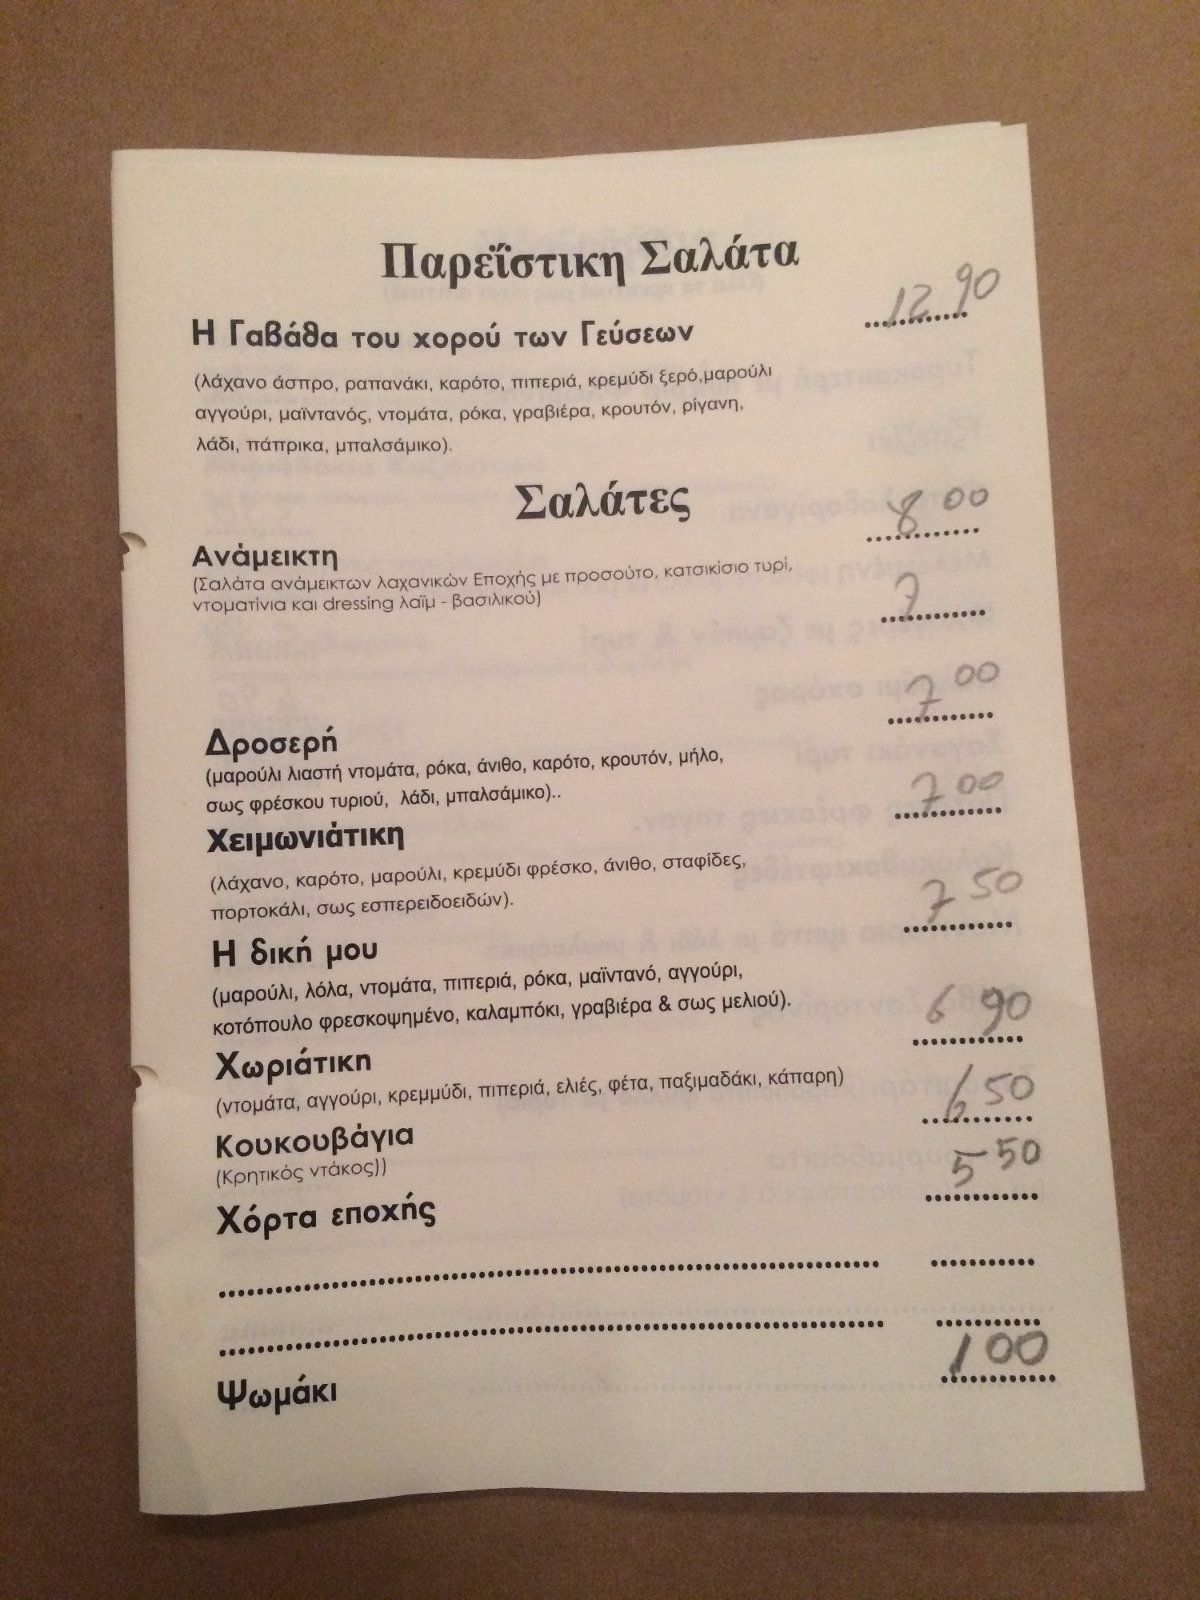 Παρεΐστικη Σαλάτα
Η Γαβάθα του χορού των Γεύσεων ............ 12 90
(λάχανο άσπρο, ραπανάκι, καρότο, πιπεριά, κρεμύδι ξερό,μαρούλι
αγγούρι, μαϊντανός, ντομάτα, ρόκα, γραβιέρα, κρουτόν, ρίγανη,
λάδι, πάπρικα, μπαλσάμικο).
Σαλάτες
Ανάμεικτη ............ 8 00
(Σαλάτα ανάμεικτων λαχανικών Εποχής με προσούτο, κατσικίσιο τυρί,
ντοματίνια και dressing λαϊμ - βασιλικού)
............ 7
Δροσερή ............ 7 00
(μαρούλι λιαστή ντομάτα, ρόκα, άνιθο, καρότο, κρουτόν, μήλο,
σως φρέσκου τυριού, λάδι, μπαλσάμικο)..
Χειμωνιάτικη ............ 7 00
(λάχανο, καρότο, μαρούλι, κρεμύδι φρέσκο, άνιθο, σταφίδες,
πορτοκάλι, σως εσπερειδοειδών).
Η δική μου ............ 7 50
(μαρούλι, λόλα, ντομάτα, πιπεριά, ρόκα, μαϊντανό, αγγούρι,
κοτόπουλο φρεσκοψημένο, καλαμπόκι, γραβιέρα & σως μελιού).
Χωριάτικη ............ 6 90
(ντομάτα, αγγούρι, κρεμμύδι, πιπεριά, ελιές, φέτα, παξιμαδάκι, κάπαρη)
Κουκουβάγια ............ 6 50
(Κρητικός ντάκος))
Χόρτα εποχής ............ 5 50
Ψωμάκι ............ 1 00